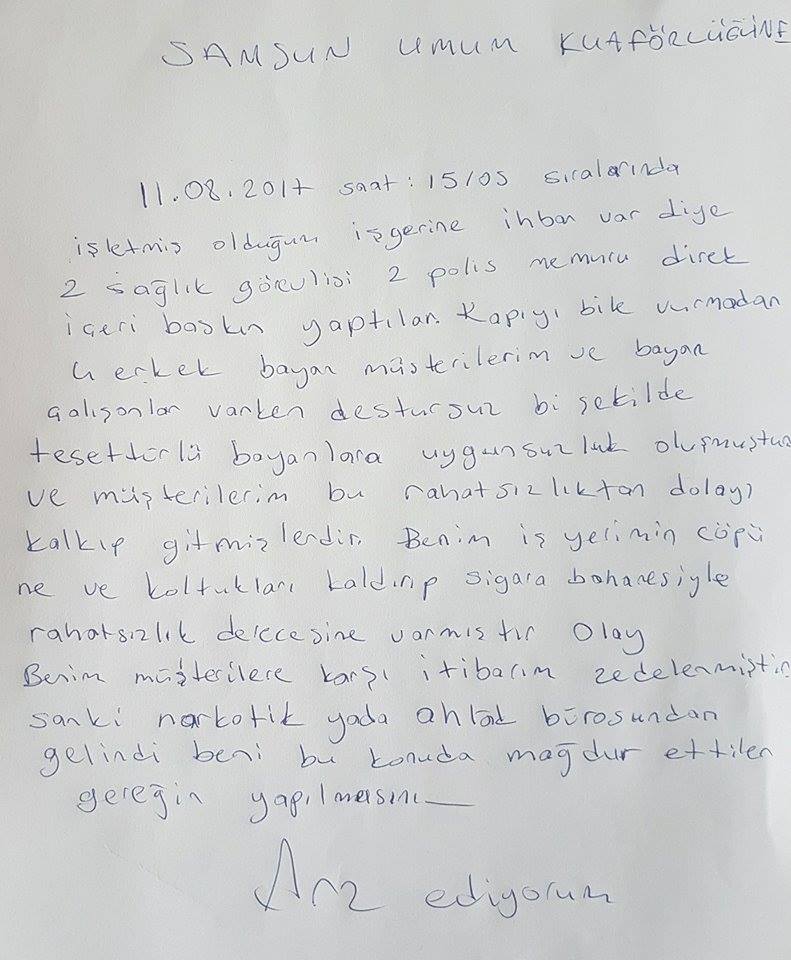 SAMSUN UMUM KUAFÖRLÜĞÜNE
11.08.2017 saat: 15/05 sıralarında
işletmiş olduğum işyerine ihbar var diye
2 sağlık görevlisi 2 polis memuru direk
içeri baskın yaptılar. Kapıyı bile vurmadan
4 erkek bayan müşterilerim ve bayan
çalışanlar varken destursuz bi şekilde
tesettürlü bayanlara uygunsuzluk oluşmuştur
ve müşterilerim bu rahatsızlıktan dolayı
kalkıp gitmişlerdir. Benim iş yerimin çöpü
ne ve koltukları kaldırıp sigara bahanesiyle
rahatsızlık derecesine varmıştır Olay
Benim müşterilere karşı itibarım zedelenmiştir
sanki narkotik yada ahlak bürosundan
gelindi beni bu konuda mağdur ettiler
gereğin yapılmasını
Arz ediyorum